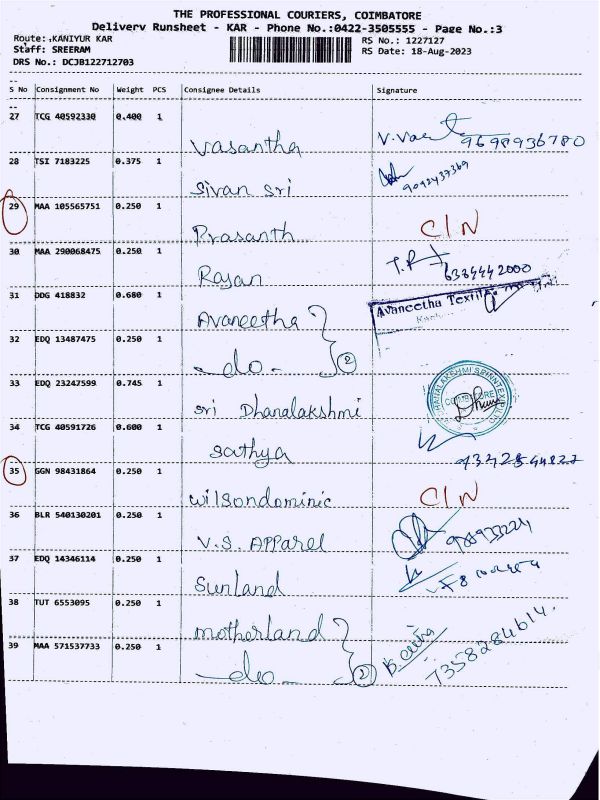 THE PROFESSIONAL COURIERS, COIMBATORE
Delivery Runsheet - KAR - Phone No.:0422-3505555 - Page No.:3
Route: KANIYUR KAR RS No.: 1227127
Staff: SREERAM RS Date: 18-Aug-2023
DRS No.: DCJB122712703
S No Consignment No Weight PCS Consignee Details Signature
27 TCG 40592330 0.400 1
Vasantha 9698936780
28 TSI 7183225 0.375 1
Sivan sri 9092437369
29 MAA 105565751 0.250 1
Prasanth C/N
30 MAA 290068475 0.250 1
Rajan
31 DDG 418832 0.680 1
Avaneetha Avaneetha Textile
32 EDQ 13487475 0.250 1
-do- 2
33 EDQ 23247599 0.745 1
Sri Dhanalakshmi
34 TCG 40591726 0.600 1
Sathya
35 GGN 98431864 0.250 1
Wilsondominic C/N
36 BLR 540130201 0.250 1
V.S. Apparel
37 EDQ 14346114 0.250 1
Sunland
38 TUT 6553095 0.250 1
Motherland
39 MAA 571537733 0.250 1
-do- 2 7358284614